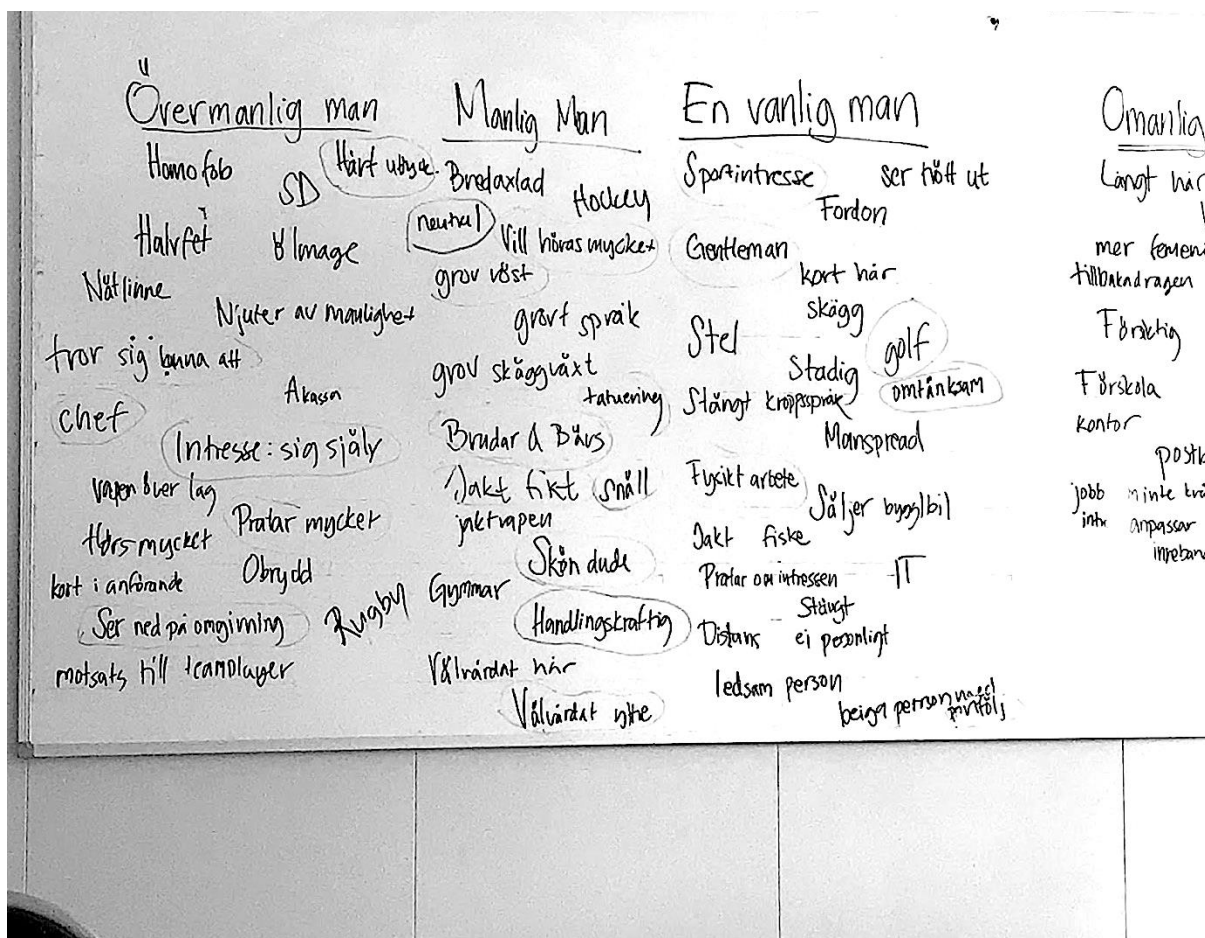 Övermanlig man
Homofob
SD
Hårt uttryck.
Halvfet
Ölmage
Nätlinne
Njuter av manlighet
tror sig kunna allt
Akassa
chef
Intresse: sig själv
vapen över lag
Pratar mycket
Hörs mycket
Obrydd
kort i anförande
Ser ned på omgivning
Rugby
motsats till teamplayer
Manlig Man
Bredaxlad
Hockey
neutral
Vill höras mycket
grov röst
grovt språk
grov skäggväxt
tatuering
Brudar & Bärs
Jakt fikt snäll
jaktvapen
Skön dude
Gymmar
Handlingskraftig
Välvårdat hår
Välvårdat yttre
En vanlig man
Sportintresse
ser trött ut
Fordon
Gentleman
kort hår
skägg
Stel
golf
Stadig
omtänksam
Stängt kroppsspråk
Manspread
Fysikt arbete
Säljer bygglbil
Jakt fiske
Pratar om intressen
IT
Stängt
Distans ej personligt
ledsam person
beiga person med portfölj
Omanlig
Långt hår
mer femeni
tillbakadragen
Försiktig
Förskola
kontor
postk
jobb inte krä
inte anpassar
inneban